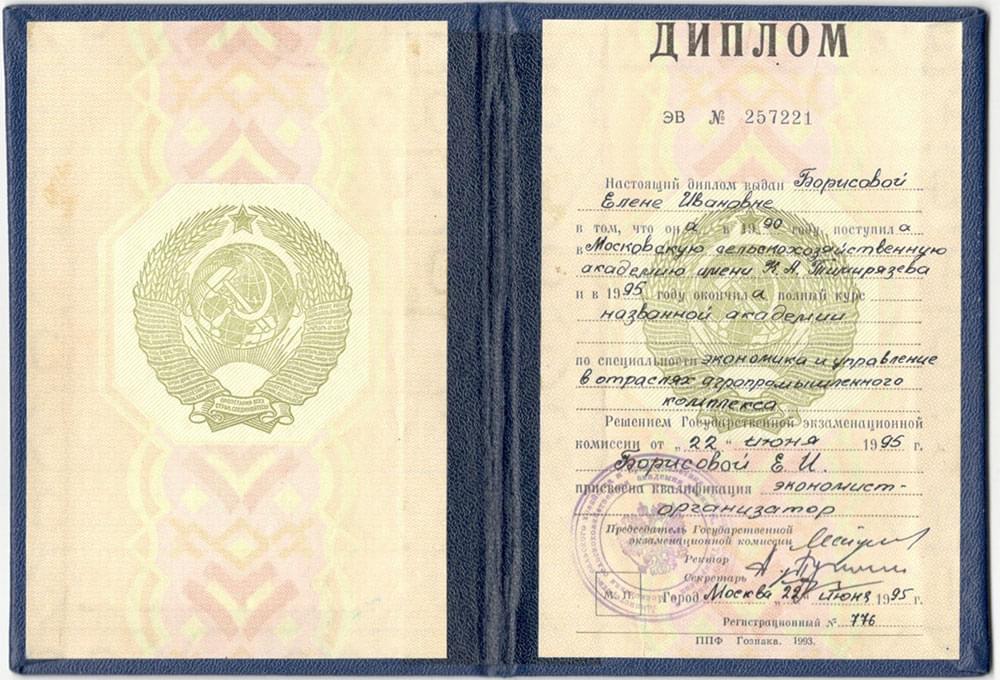 ПРОЛЕТАРИИ ВСЕХ
СТРАН, СОЕДИНЯЙТЕСЬ!
ДИПЛОМ
ЭВ № 257221
Настоящий диплом выдан Борисовой
Елене Ивановне
в том, что она в 1990 году поступила
в Московскую сельскохозяйственную
академию имени К. А. Тимирязева
и в 1995 году окончила полный курс
названной академии
по специальности экономика и управление
в отраслях агропромышленного
комплекса
Решением Государственной экзаменационной
комиссии от „22“ июня 1995 г.
Борисовой Е. И.
присвоена квалификация экономист-
организатор
Председатель Государственной
экзаменационной комиссии
Ректор
Секретарь
М. П. Город Москва „22“ июня 1995 г.
Регистрационный № 776
ППФ Гознака. 1993.